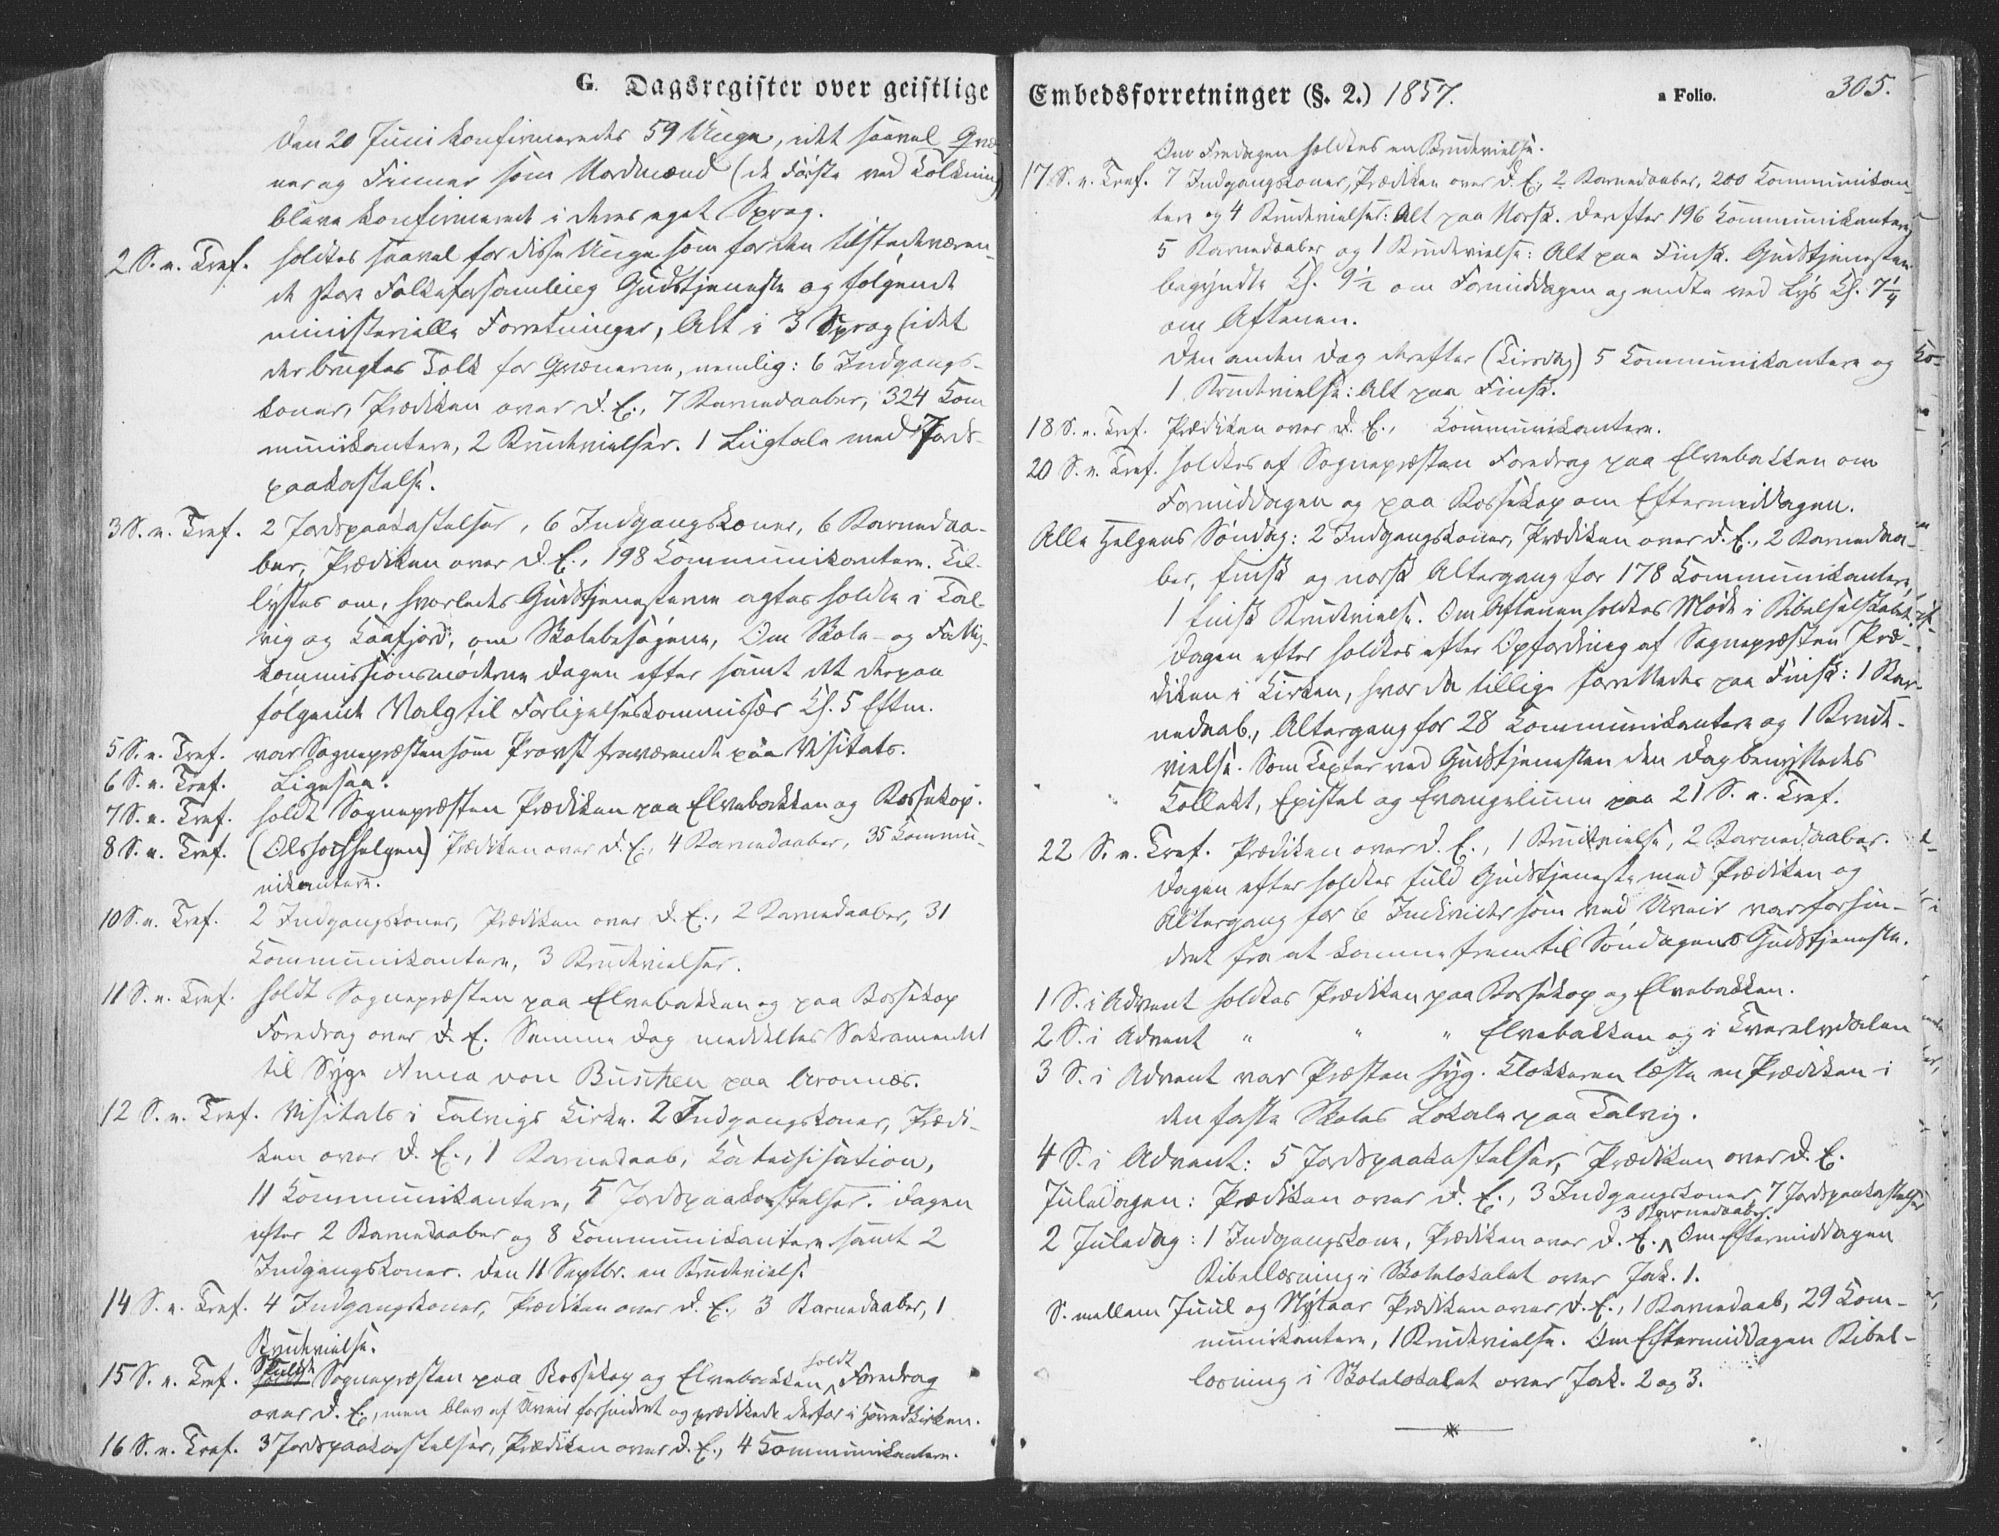 G. Dagsregister over geistlige
Den 20 Juni konfirmeredes 59 Unge, idet saavel Qvæ-
ner og Finner som Nordmænd (de første ved Tolkning)
bleve konfirmeret i deres eget Sprog.
2 S. e. Tref. holdtes saavel for disse Unge som for den tilstedeværen-
de store Folkeforsamling Gudstjeneste og følgende
ministerielle Forretninger, Alt i 3 Sprog (idet
der brugtes Tolk for Qvænerne, nemlig: 6 Indgangs-
koner, Prædiken over d. E., 7 Barnedaaber, 324 Kom
munikantere, 2 Brudevielser. 1 Liigtale med Jords-
paakastelse.
3 S. e. Tref. 2 Jordspaakastelser, 6 Indgangskoner, 6 Barnedaa-
ber, Prædiken over d. E., 198 Kommunikantere. Til-
lystes om, hvorledes Gudstjenesterne agtes holdte i Tal-
vig og Kaafjord, om Skolebesøgene, Om Skole- og Fattig-
kommissionsmøderne Dagen efter samt det derpaa
følgende Valg til Forligelseskommissær Kl. 5 Eftm.
5 S. e. Tref. var Sognepræsten som Provst fraværende paa Visitats.
6 S. e. Tref. Ligesaa.
7 S. e. Tref. holdt Sognepræsten Prædiken paa Elvebakken og Bossekop.
8 S. e. Tref. (Olsokhelgen) Prædiken over d. E., 4 Barnedaaber, 35 Kommu-
nikantere.
10 S. e. Tref. 2 Indgangskoner, Prædiken over d. E., 2 Barnedaaber, 31
Kommunikantere, 3 Brudevielser.
11 S. e. Tref. holdt Sognepræsten paa Elvebakken og paa Bossekop
Foredrag over d. E. Samme Dag meddeltes Sakramentet
til Syge Anna von Buschen paa Aronnæs.
12 S. e. Tref. Visitats i Talvigs Kirke. 2 Indgangskoner, Prædi-
ken over d. E., 1 Barnedaab, Katechisation,
11 Kommunikantere, 5 Jordspaakastelser. Dagen
efter 2 Barnedaaber og 8 Kommunikantere samt 2
Indgangskoner. Den 11 Septbr. en Brudevielse
14 S. e. Tref. 4 Indgangskoner, Prædiken over d. E., 3 Barnedaaber, 1
Brudevielse.
15 S. e. Tref. Skulde Sognepræsten paa Bossekop og Elvebakken holdt Foredrag
over d. E., men blev af Uveir forhindret og prædikede derfor i Hovedkirken.
16 S. e. Tref. 3 Jordspaakastelser, Prædiken over d. E., 4 Kommunikantere.
Embedsforretninger (§. 2.) 1857. a Folio. 305.
Om Fredagen holdtes en Brudevielse.
17 S. e. Tref. 7 Indgangskoner, Prædiken over d. E., 2 Barnedaaber, 200 Kommunikan-
tere og 4 Brudevielser: Alt paa Norsk. Derefter 196 Kommunikantere,
5 Barnedaaber og 1 Brudevielse: Alt paa Finsk. Gudstjenesten
begyndte Kl. 9½ om Formiddagen og endte ved Lys Kl. 7¼
om Aftenen.
Den anden Dag derefter (Tirsdag) 5 Kommunikantere og
1 Brudevielse: Alt paa Finsk.
18 S. e. Tref. Prædiken over d. E., Kommunikantere.
20 S. e. Tref. holdtes af Sognepræsten Foredrag paa Elvebakken om
Formiddagen og paa Bossekop om Eftermiddagen.
Alle Helgens Søndag: 2 Indgangskoner, Prædiken over d. E., 2 Barnedaa-
ber, finsk og norsk Altergang for 178 Kommunikantere,
1 finsk Brudevielse. Om Aftenen holdtes Møde i Bibelselskabet.
Dagen efter holdtes efter Opfordring af Sognepræsten Præ-
diken i Kirken, hvor da tillige forrettedes paa Finsk: 1 Bar-
nedaab, Altergang for 28 Kommunikantere og 1 Brude-
vielse. Som Texter ved Gudstjenesten den Dag benyttedes
Kollekt, Epistel og Evangelium paa 21 S. e. Tref.
22 S. e. Tref. Prædiken over d. E., 1 Brudevielse, 2 Barnedaaber.
Dagen efter holdtes fuld Gudstjeneste med Prædiken og
Altergang for 6 Individer som ved Uveir var forhin-
dret fra at komme frem til Søndagens Gudstjeneste.
1 S. i Advent holdtes Prædiken paa Bossekop og Elvebakken.
2 S. i Advent " " " Elvebakken og i Tverelvdalen
3 S. i Advent var Præsten syg. Klokkeren læste en Prædiken i
den faste Skoles Lokale paa Talvig.
4 S. i Advent: 5 Jordspaakastelser, Prædiken over d. E.
Juledagen: Prædiken over d. E., 3 Indgangskoner, 7 Jordspaakastelser
3 Barnedaaber.
2 Juledag: 1 Indgangskone, Prædiken over d. E. Om Eftermiddagen
Bibellæsning i Skolelokalet over Jak. 1.
S. mellem Juul og Nytaar Prædiken over d. E., 1 Barnedaab, 29 Kom-
munikantere, 1 Brudevielse. Om Eftermiddagen Bibel-
læsning i Skolelokalet over Jak. 2 og 3.